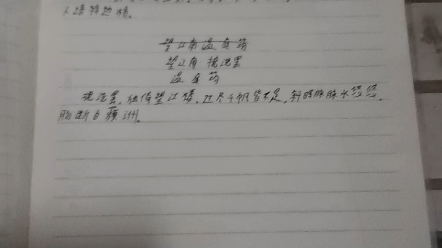 望江南 温庭筠
望江南 梳洗罢
温庭筠
梳洗罢,独倚望江楼,过尽千帆皆不是,斜晖脉脉水悠悠,
肠断白蘋洲。